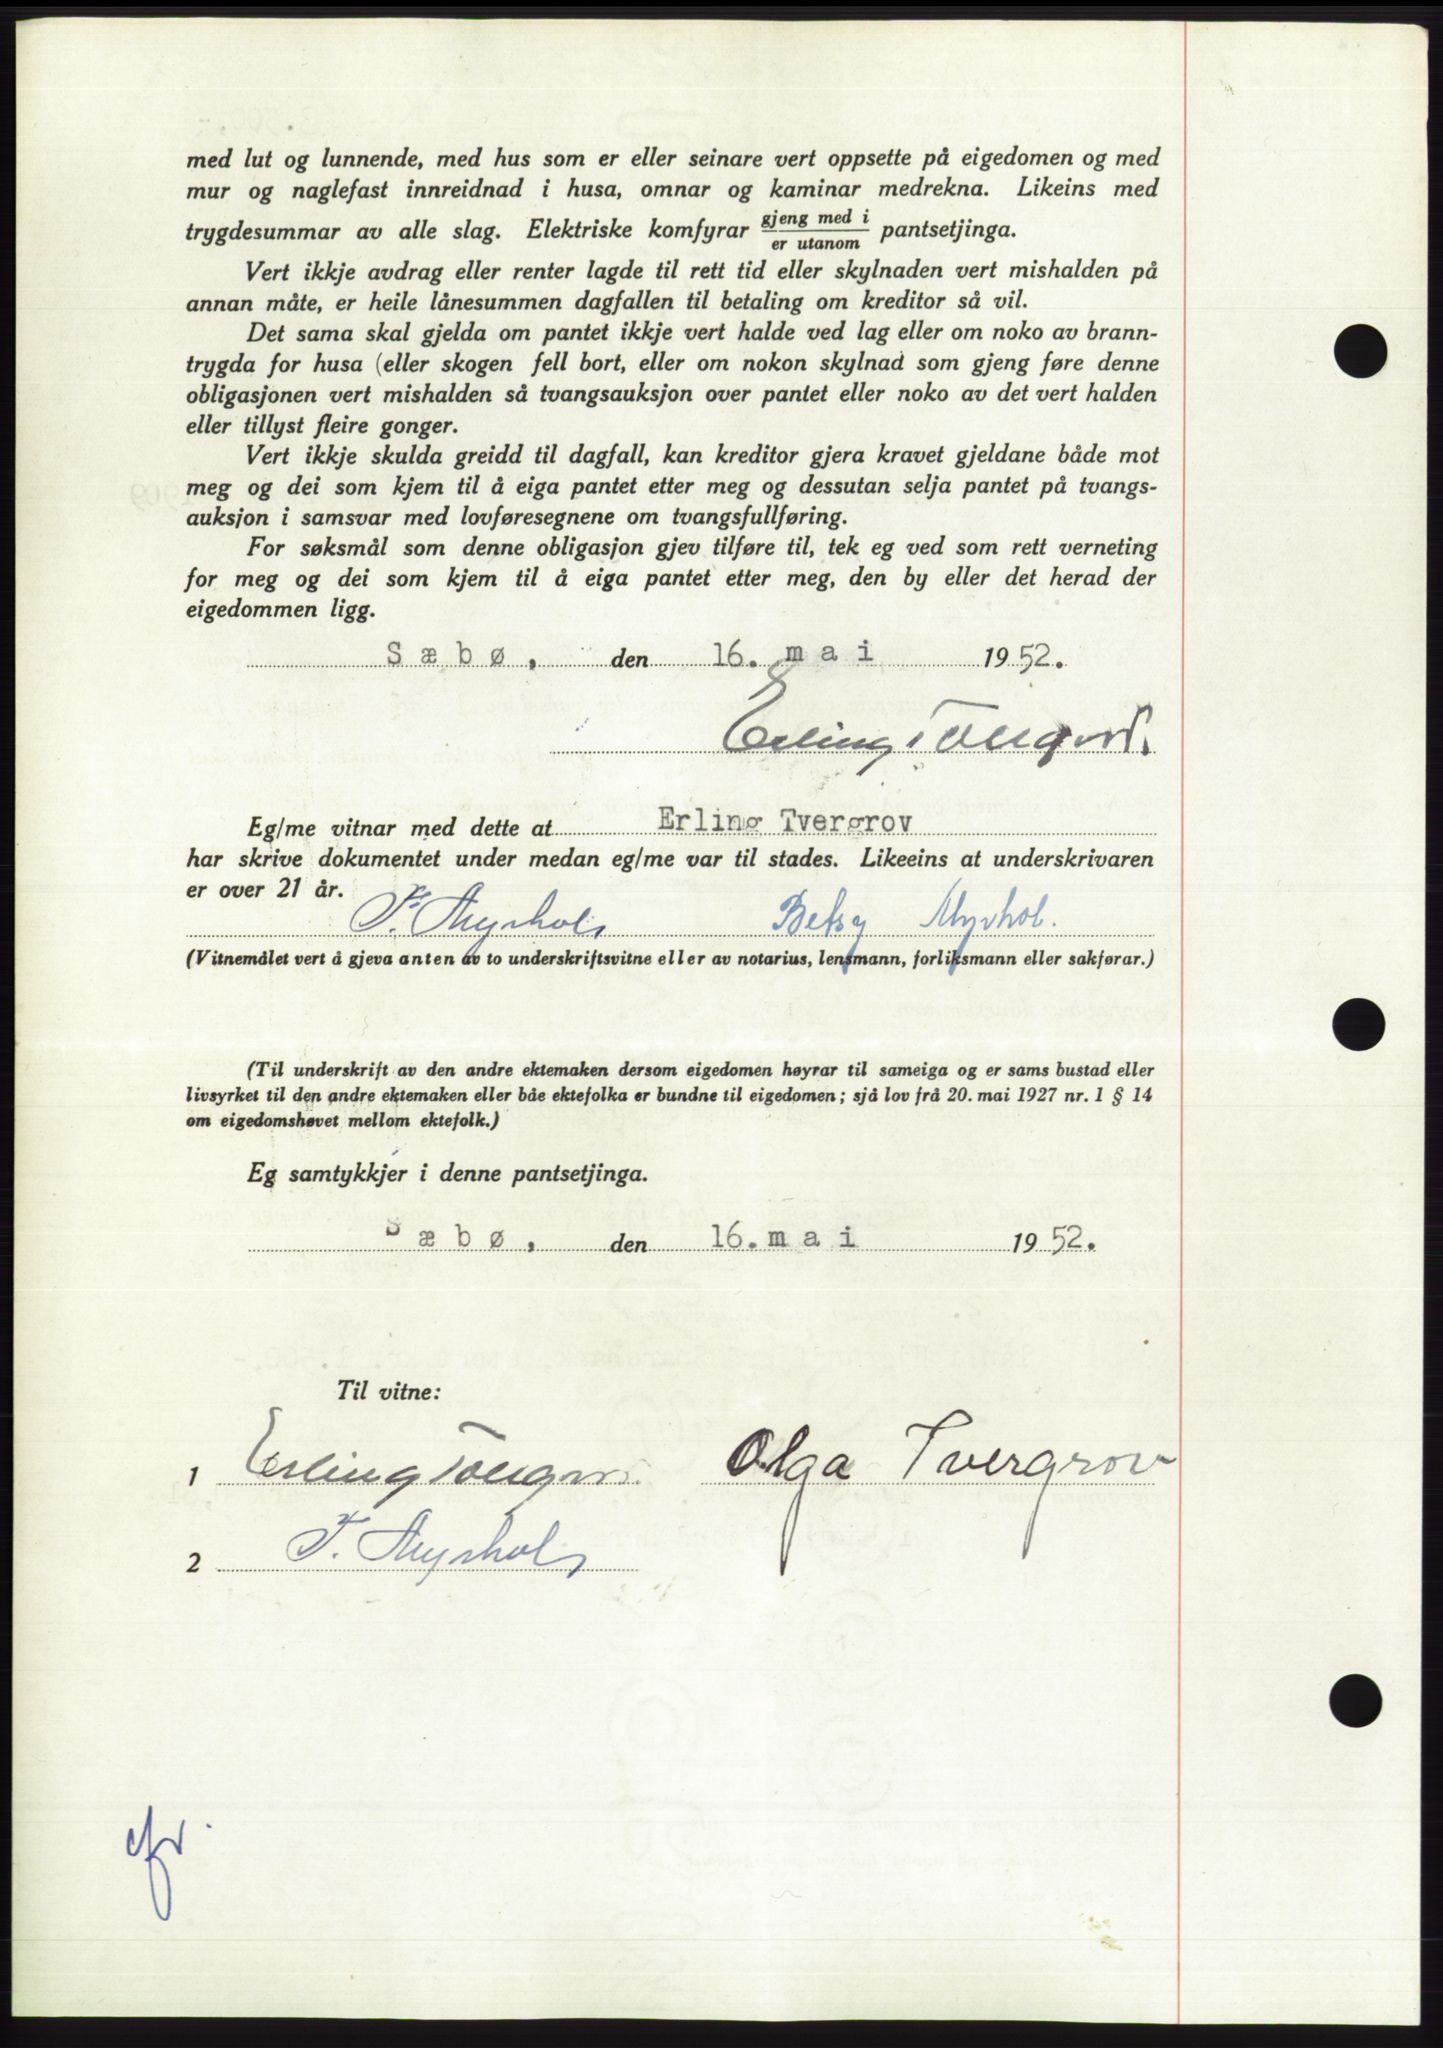 med lut og lunnende, med hus som er eller seinare vert oppsette på eigedomen og med
mur og naglefast innreidnad i husa, omnar og kaminar medrekna. Likeins med
trygdesummar av alle slag. Elektriske komfyrar gjeng med i / er utanom pantsetjinga.
Vert ikkje avdrag eller renter lagde til rett tid eller skylnaden vert mishalden på
annan måte, er heile lånesummen dagfallen til betaling om kreditor så vil.
Det sama skal gjelda om pantet ikkje vert halde ved lag eller om noko av brann-
trygda for husa (eller skogen fell bort, eller om nokon skylnad som gjeng føre denne
obligasjonen vert mishalden så tvangsauksjon over pantet eller noko av det vert halden
eller tillyst fleire gonger.
Vert ikkje skulda greidd til dagfall, kan kreditor gjera kravet gjeldane både mot
meg og dei som kjem til å eiga pantet etter meg og dessutan selja pantet på tvangs-
auksjon i samsvar med lovføresegnene om tvangsfullføring.
For søksmål som denne obligasjon gjev tilføre til, tek eg ved som rett verneting
for meg og dei som kjem til å eiga pantet etter meg, den by eller det herad der
eigedommen ligg.
Sæbø, den 16. mai 1952.
Erling Tvergrov.
Eg/me vitnar med dette at Erling Tvergrov
har skrive dokumentet under medan eg/me var til stades. Likeeins at underskrivaren
er over 21 år.
F. Myrhol Betsy Myrhol.
(Vitnemålet vert å gjeva anten av to underskriftsvitne eller av notarius, lensmann, forliksmann eller sakførar.)
(Til underskrift av den andre ektemaken dersom eigedomen høyrar til sameiga og er sams bustad eller
livsyrket til den andre ektemaken eller båe ektefolka er bundne til eigedomen; sjå lov frå 20. mai 1927 nr. 1 § 14
om eigedomshøvet mellom ektefolk.)
Eg samtykkjer i denne pantsetjinga.
Sæbø, den 16. mai 1952.
Til vitne:
1 Erling Tvergrov Olga Tvergrov
2 F. Myrhol